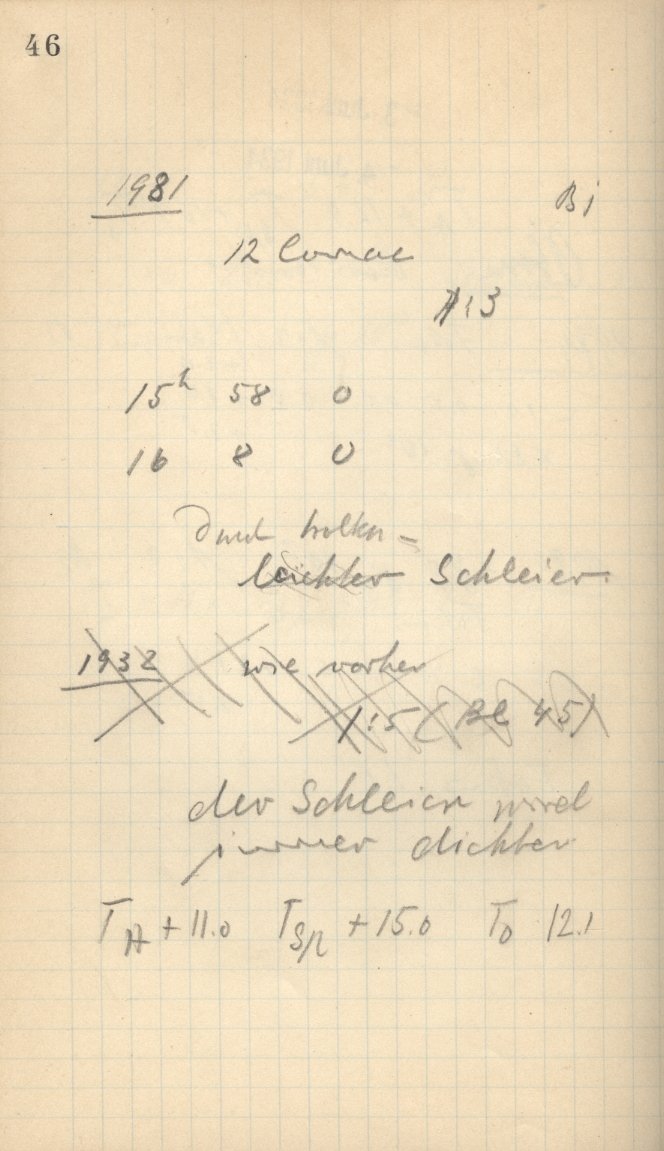 46
1981 Bj
12 Comae
1:3
15h 58 0
16 8 0
Durch Wolken-
leichter Schleier.
1932 wie vorher
1:5 (Bl 45)
der Schleier wird
immer dichter
TA + 11.0 TSpl + 15.0 T0 12.1